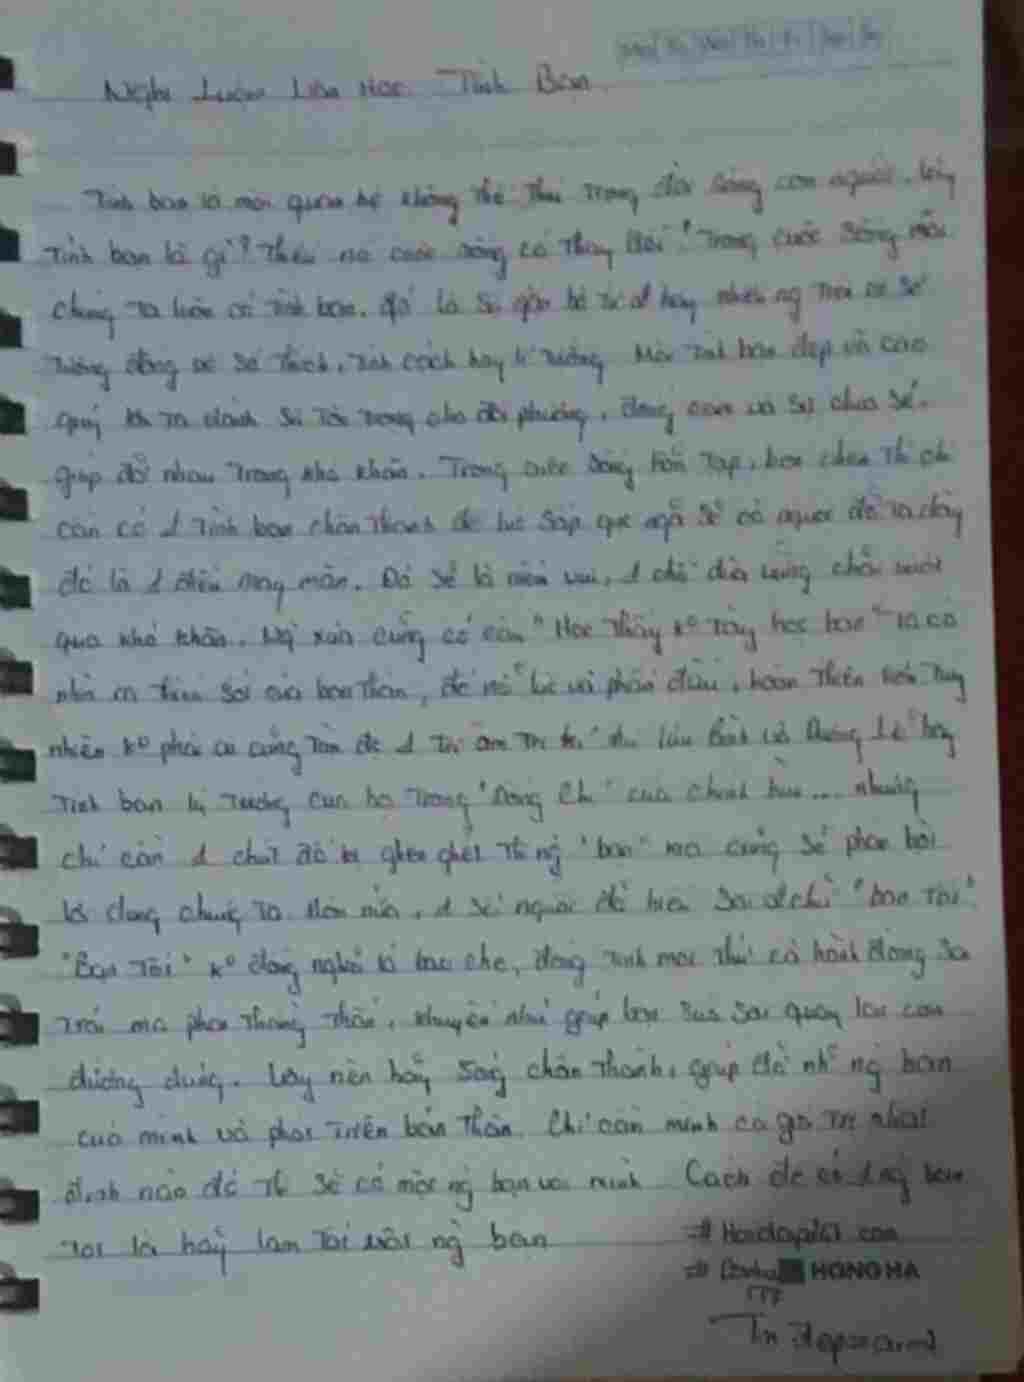 Nghị Luận Văn Học Tình Bạn
Tình bạn là mối quan hệ không thể thiếu trong đời sống con người. Vậy
tình bạn là gì? Thiếu nó cuộc sống có thay đổi? Trong cuộc sống mỗi
chúng ta luôn có tình bạn. đó là sự gắn bó từ 2 hay nhiều ng trên cơ sở
tương đồng về sở thích, tính cách hay lí tưởng. Một tình bạn đẹp và cao
quý khi ta dành sự tôn trọng cho đối phương, đồng cảm và sự chia sẻ.
giúp đỡ nhau trong khó khăn. Trong cuộc sống hỗn tạp, bon chen thì chỉ
cần có 1 tình bạn chân thành để lúc sắp gục ngã sẽ có người đỡ ta dậy
đó là 1 điều may mắn. Đó sẽ là niềm vui, 1 chỗ dựa vững chắc vượt
qua khó khăn. Ng xưa cũng có câu "Học thầy k° tày học bạn" ta có
nhìn thiếu sót của bản thân, để nỗ lực và phấn đấu, hoàn thiện hơn. Tuy
nhiên k° phải ai cũng tìm đc 1 tri âm tri kỉ như Lưu Bình và Dương Lễ hay
tình bạn lý tưởng của họ trong "Đồng Chí" của chính hữu... nhưng
chỉ cần 1 chút đố kị ghen ghét thì ng "bạn" mà cũng sẽ phản bội
lợi dụng chúng ta. Hơn nữa, 1 số người đã hiểu sai 2 chữ "bạn tôi".
"Bạn tôi" k° đồng nghĩa là bao che, đồng tình mọi thứ cả hành động sai
trái mà phải thẳng thắn, khuyên nhủ giúp bạn sửa sai quay lại con
đường đúng. Vậy nên hãy sống chân thành, giúp đỡ những ng bạn
của mình và phát triển bản thân. Chỉ cần mình có giá trị nhất
định nào đó thì sẽ có một ng bạn với mình. Cách để có 1 ng bạn
tốt là hãy làm tốt một ng bạn
# Hoidap247.com
HONG HA